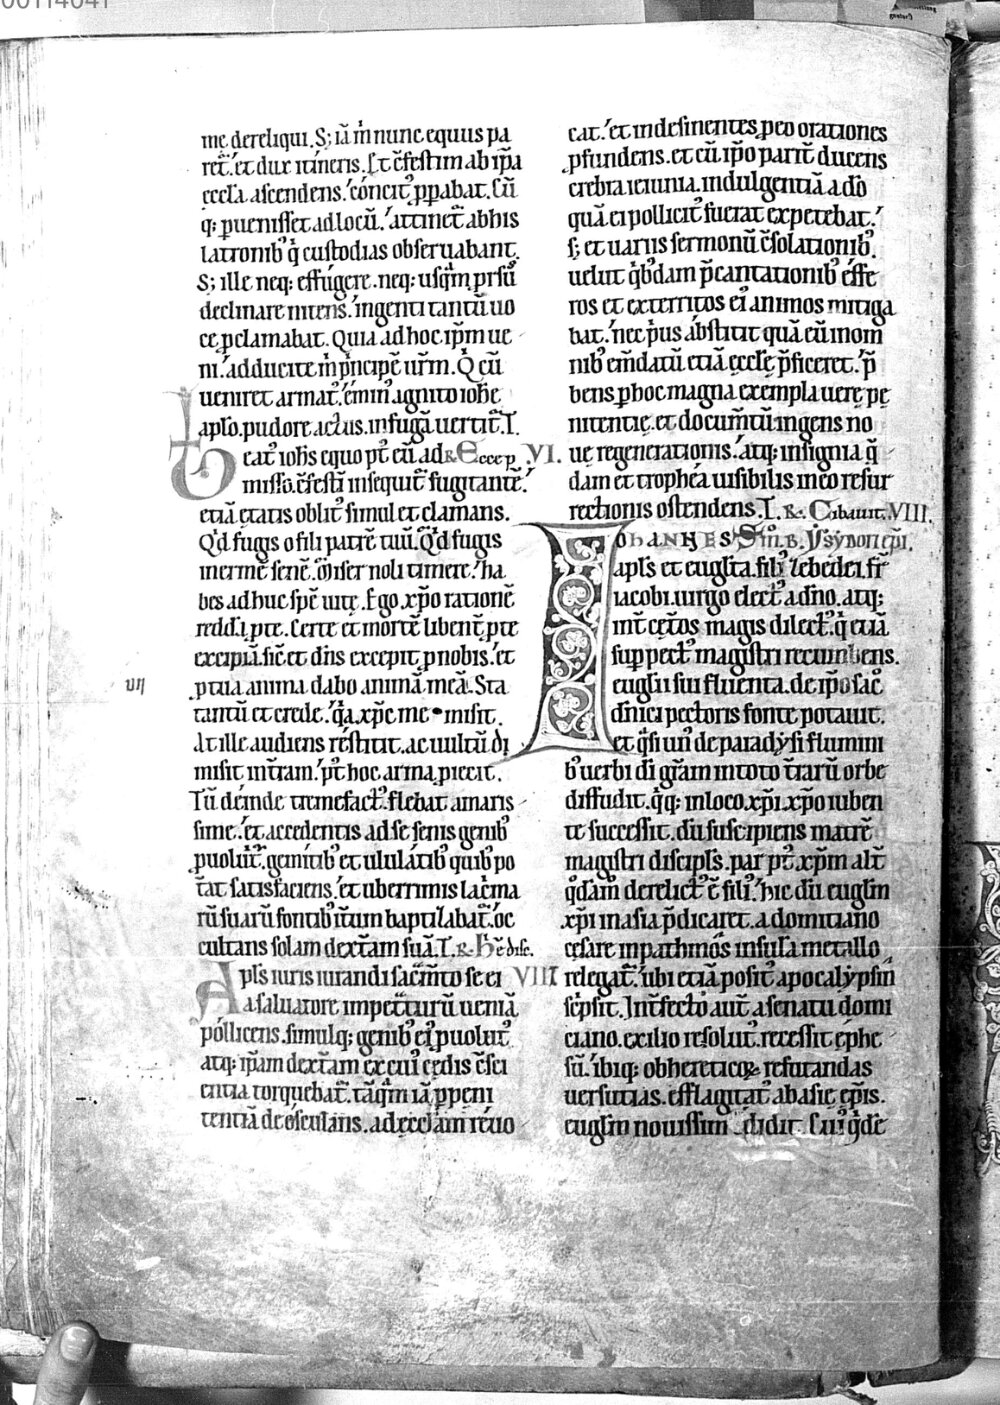 me dereliqui. S; iā m̄ nunc equus pa
ret᷑. et dux itineris. Et c̄festim ab ip̄a
eccl̄a ascendens. concit᷒ ꝓpabat. Cū
q; ꝑuenisset ad locū. attinet᷑ ab his
latronib᷒ q̇ custodias obseruabant.
S; ille neq; effugere. neq; usq̄m prsū
declinare nitens. ingenti tantū uo
ce ꝓclamabat. Quia ad hoc ip̄m ue
ni. adducite m̄ pͥncipē ur̄m. Q̇ cū
ueniret armat᷒. emin᷒ agnito iohe
aplo. pudore act᷒us. in fugā uertit᷑. T.
Teat᷒ ioh̄s equo pt᷒ cū ad R. Ecce p VI.
misso. c̄festī insequit᷑ fugitantē.
etiā etatis oblit᷒ simul et clamans.
Qd̄ fugis o fili patrē tuū. Qd̄ fugis
inermē senē. Miser noli timere. ha
bes adhuc spē uite. Ego xp̄o rationē
redd. ꝑ te. Certe et mortē libent᷑ ꝑ te
excipiā. sic et dn̄s excepit ꝓ nobis. et
ꝓ tua anima dabo animā meā. Sta
tantū et crede. q̇a xp̄c me misit.
At ille audiens restitit. ac uultū di
VII
misit in t᷑ram. pt᷒ hoc arma piecit.
Tū deinde tremefact᷒ flebat amaris
sime. et accedentis ad se senis genib᷒
ꝓuoluit᷑. gemitib᷒ et ululatib᷒ quib᷒ po
t᷑at satisfaciens. et uberrimis lacͥma
rū suarū fontib᷒ it᷑um baptizabat᷑. oc
cultans solam dext᷑am suā. T. R. H̄ ē disc.
Apl̄s iuris iurandi sacm̄to se ei VIII
a saluatore impet᷑turū ueniā
pollicens. simulq; genib᷒ ei᷒ ꝓuolut᷒
atq; ip̄am dext᷑am ex cui᷒ cedis c̄sci
entia torquebat᷑. tāq̄m iā ꝑ peni
tentiā deosculans. ad eccl̄am reuo
cat. et indesinentes ꝓ eo orationes
ꝓfundens. et cū ip̄o parit᷑ ducens
crebra ieiunia. indulgentiā a do
quā ei pollicit᷒ fuerat expetebat.
S; et uariis sermonū c̄solationib᷒.
uelut q̇bdam p̄cantationib᷒ effe
ros et exterritos ei᷒ animos mitiga
bat. nec pͥus abstitit quā cū in om
nib᷒ em̄datū etiā eccl̄e p̄ficeret. p̄
bens ꝑ hoc magna exempla uere pe
nitentie. et docum̄tū ingens no
ue regenerationis. atq; insignia q̄
dam et trophea uisibilis in eo resur
rectionis ostendens. T. R. Cibauit. VIII.
IOHANNES S̄m. B. Ysydori ep̄i.
apl̄s et eugl̄ta. fili᷒ zebedei. fr̄
iacobi. uirgo elect᷒ a dn̄o. atq;
int᷑ cet᷑os magis dilect᷒. q̇ etiā
suꝑ pect᷒ magistri recumbens.
euglii sui fluenta. de ip̄o sac᷑
dn̄ici pectoris fonte potauit.
et q̇si un᷒ de paradysi flumini
b᷒ uerbi di gr̄am in toto t᷑rarū orbe
diffudit. q̇q; in loco xp̄i. xp̄o iuben
te successit. dū suscipiens matrē
magistri discipl̄s. par pt᷒. xp̄m alt᷑
q̇dām derelict᷒ ē fili᷒. hic dū eugl̄m
xp̄i in asia p̄dicaret. a domitiano
cesare in pathmos insula metallo
relegat᷑. ubi etiā posit᷒ apocalypsin
scͥpsit. Int᷑fecto aut̄ a senatu domi
ciano. exilio resolut᷒. recessit ephe
sū. ibiq; ob hereticoꝝ refutandas
uersutias. efflagitat᷒ ab asie ep̄is.
eugl̄m nouissim᷒ edidit. Cui᷒ q̇de